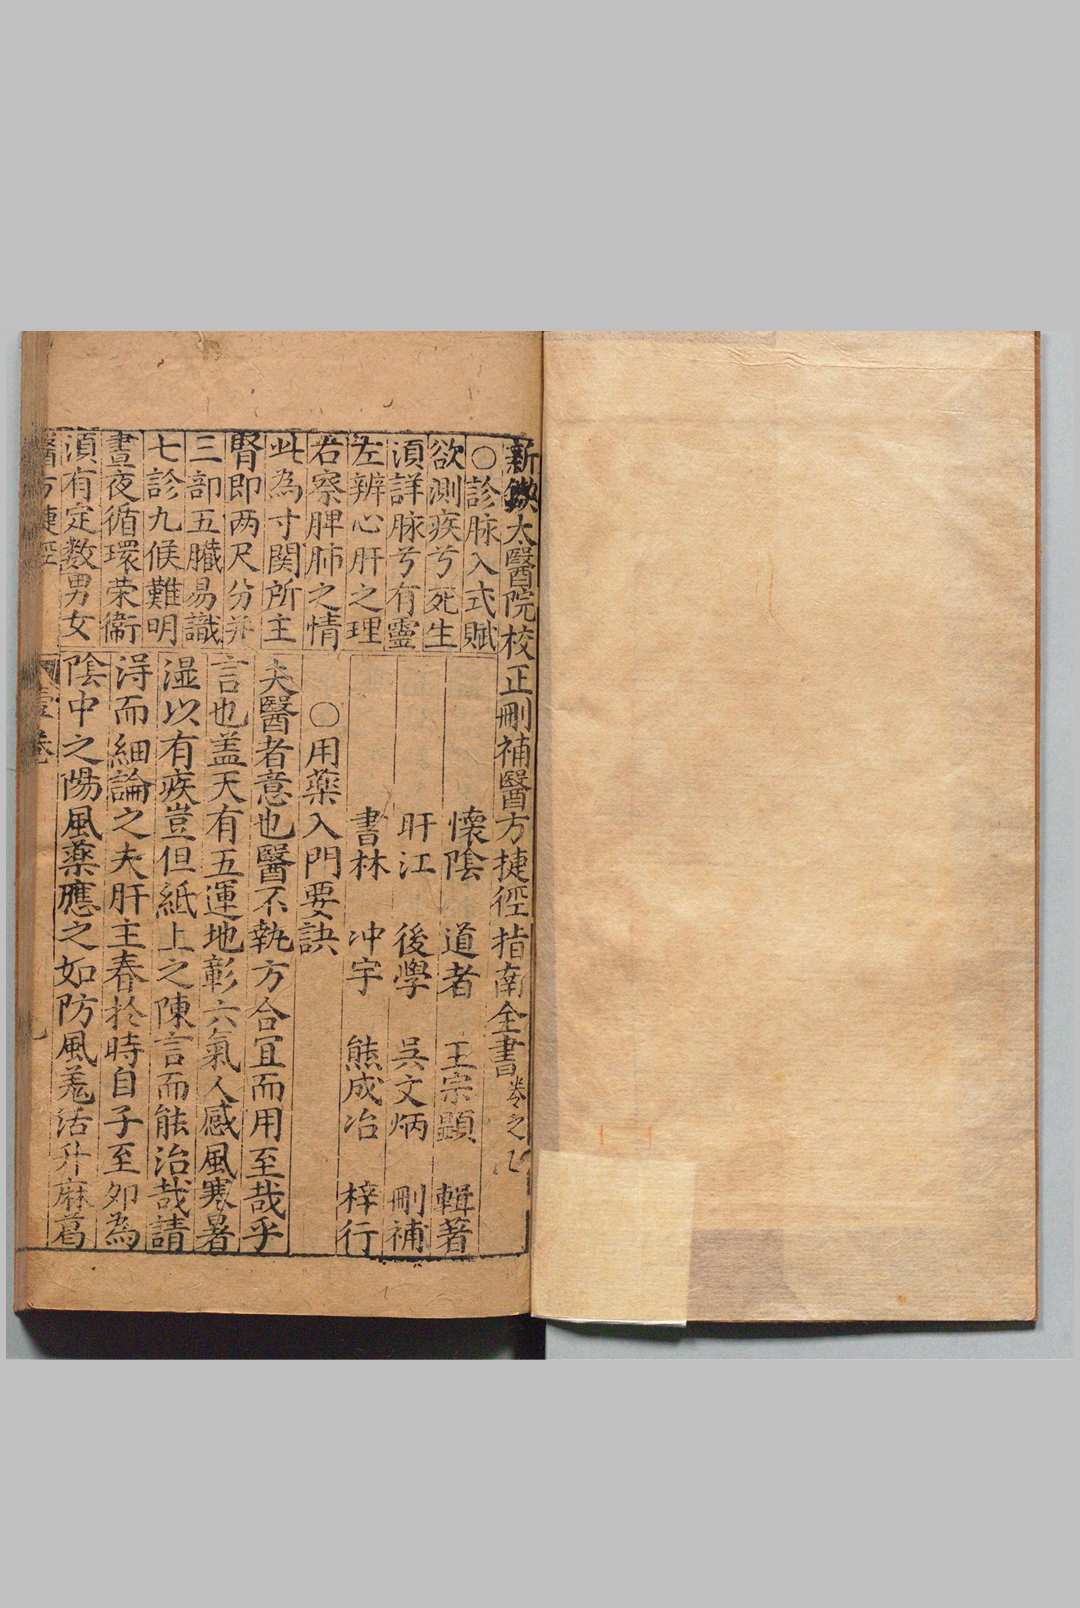 新鐫太醫院校正刪補醫方捷徑指南全書卷之
○診脉入式賦
欲測疾兮死生
湏詳脉兮有靈
左辨心肝之理
右察脾肺之情
此為寸関所主
腎即两尺分并
三部五臟易識
七診九候難明
晝夜循環荣衞
湏有定数男女
懷陰 道者 王宗顕 輯著
旴江 後學 吳文炳 刪補
書林 冲宇 熊成冶 梓行
○用藥入門要訣
夫醫者意也醫不執方合宜而用至哉乎
言也盖天有五運地彰六氣人感風寒暑
湿以有疾豈但紙上之陳言而能治哉請
淂而細論之夫肝主春於時自子至夘為
陰中之陽風藥應之如防風羗活升麻葛
醫方捷徑 壹卷